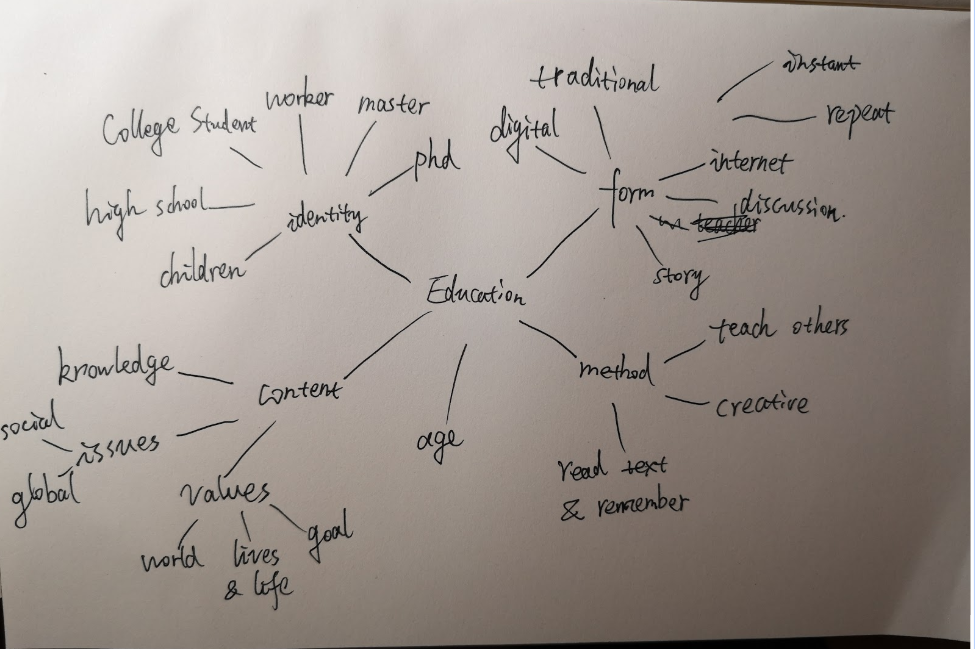 traditional
instant
worker
master
College Student
digital
repeat
phd
internet
form
high school
identity
discussion.
teacher
children
story
Education
teach others
knowledge
method
content
creative
social
issues
age
read text
& remember
global
values
goal
world
lives
& life